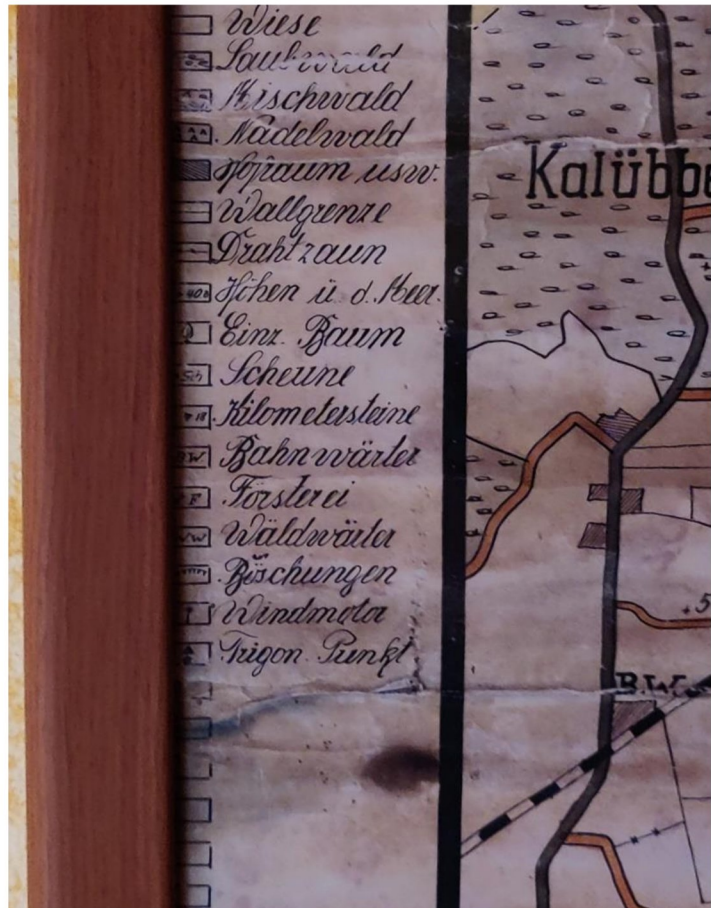 Wiese
Laubwald
Mischwald
Nadelwald
Hofraum usw.
Wallgrenze
Drahtzaun
Höhen ü. d. Meer.
Einz. Baum
Scheune
Kilometersteine
Bahnwärter
Försterei
Waldwärter
Böschungen
Windmotor
Trigon. Punkt
Kalübbe
.5
B.W.